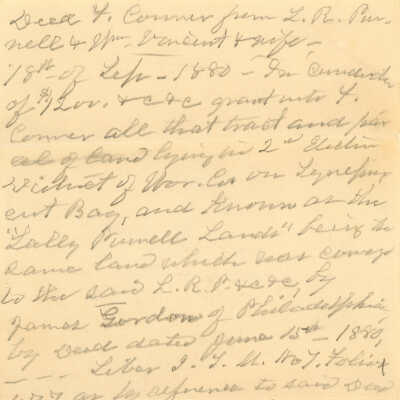 Deed F. Conner from L. R. Pur-
nell & Wm. Vincent & wife -
18th of Sep - 1880 - In consideration
of $1200. &c &c grant unto F.
Conner all that tract and par
cel of land lying in 2nd Election
District of Wor. Co on Synepux
ent Bay, and Known as the
"Sally Purnell Lands" being the
same land which was convey
to the said L. R. P. &c &c, by
James Gordon of Philadelphia
by Deed dated June 15th - 1880,
- - - - Liber I. T. M. No 7. Folio
as by reference to said Deed